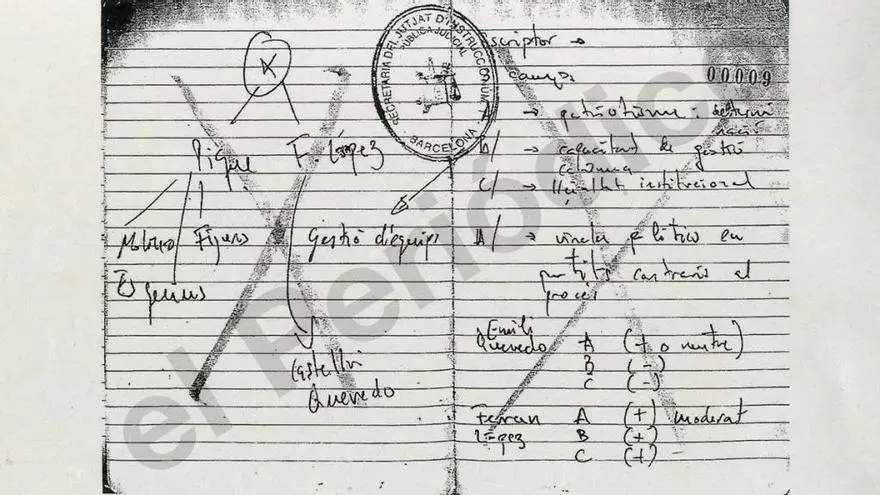 A
Piqué F. López
Molinero Figueres Gestió d'equips
Castellví
Quevedo
SECRETARIA DEL JUTJAT D'INSTRUCCIÓ NÚM.
PÚBLICA JUDICIAL
BARCELONA
scriptor →
camps
00009
A/ → patriotisme:
B/ → capacitat de gestió
C/ → lleialtat institucional
→ vincles polítics en
partits contraris al
procés
Emili
Quevedo A (+ o neutre)
B (-)
C (-)
Ferran A (+) moderat
López B (+)
C (+)
el Periódico